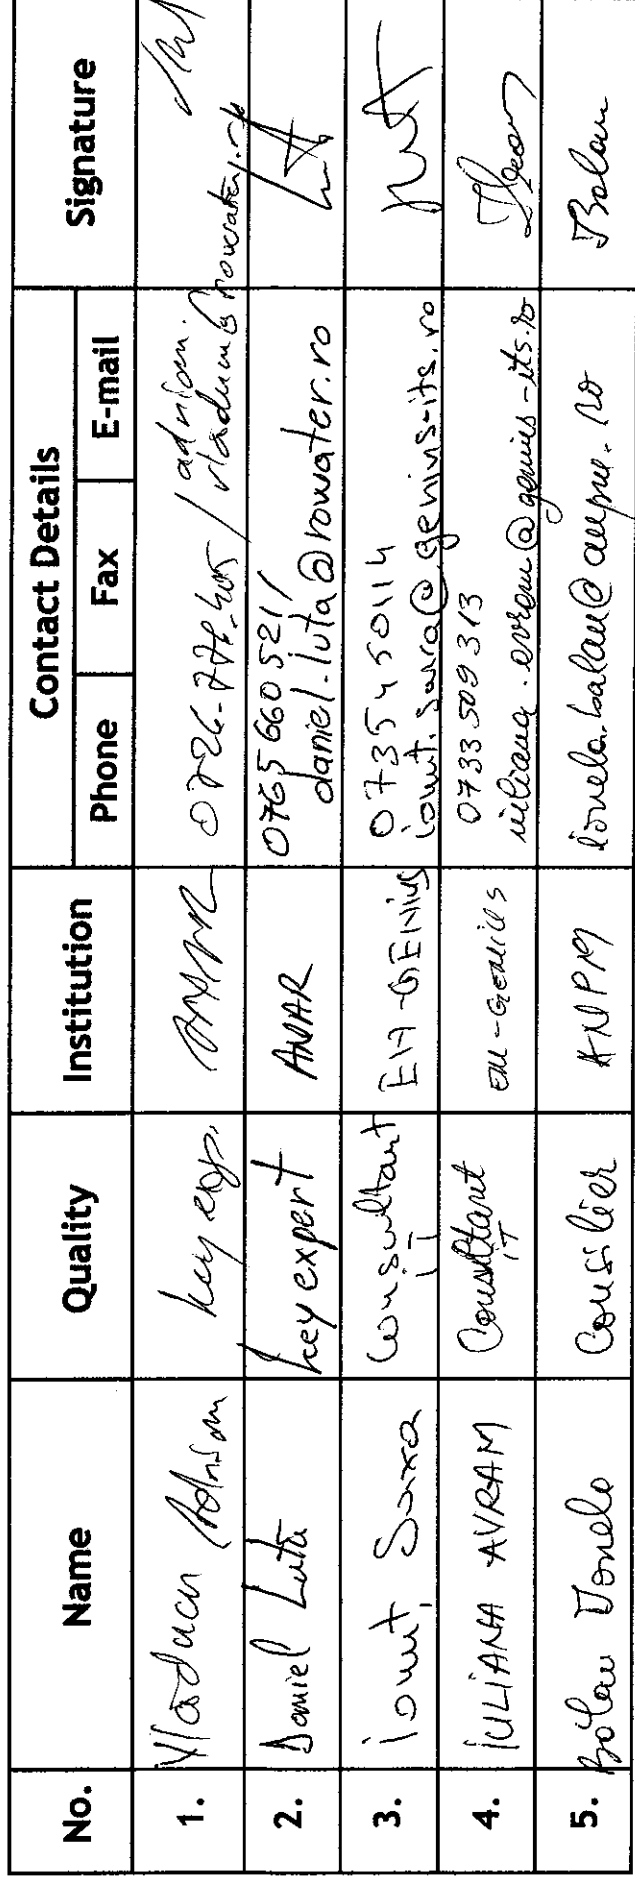 No. Name Quality Institution Contact Details Signature
Phone Fax E-mail
1. Vladucu Adrian key exp. adrian.
2. Daniel Luta key expert ANAR 0765 660 521/
daniel.luta@rowater.ro
3. ionut, Saira Consultant IT EM-GENIUS 0735450114
ionut.saira@genius-its.ro
4. IULIANA AVRAM Consultant IT EM-GENIUS 0733 509 313
iuliana.avram@genius-its.ro
5. Balau Ionela Consilier ANPM ionela.balau@anpm.ro Balau